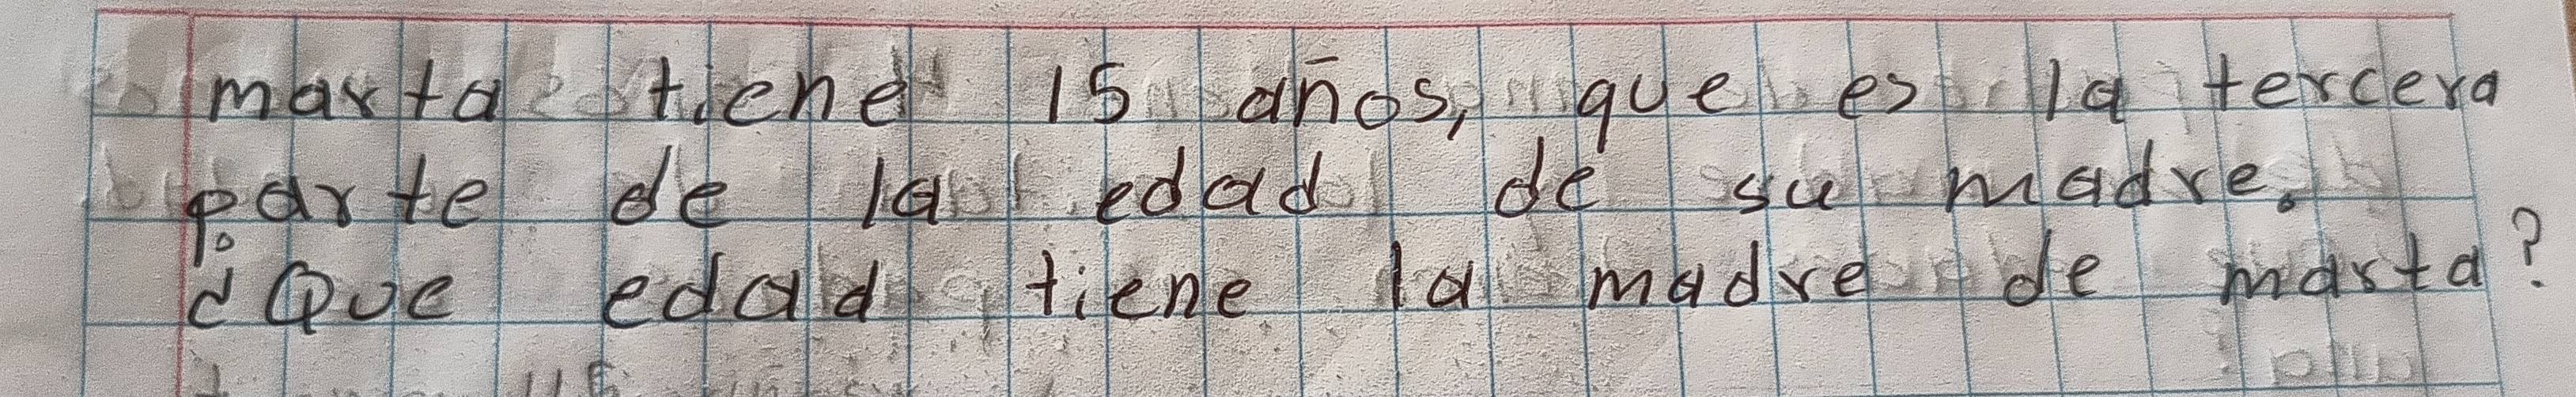 marta tiene 15 años, que es la tercera
parte de la edad de su madre.
¿Que edad tiene la madre de marta?